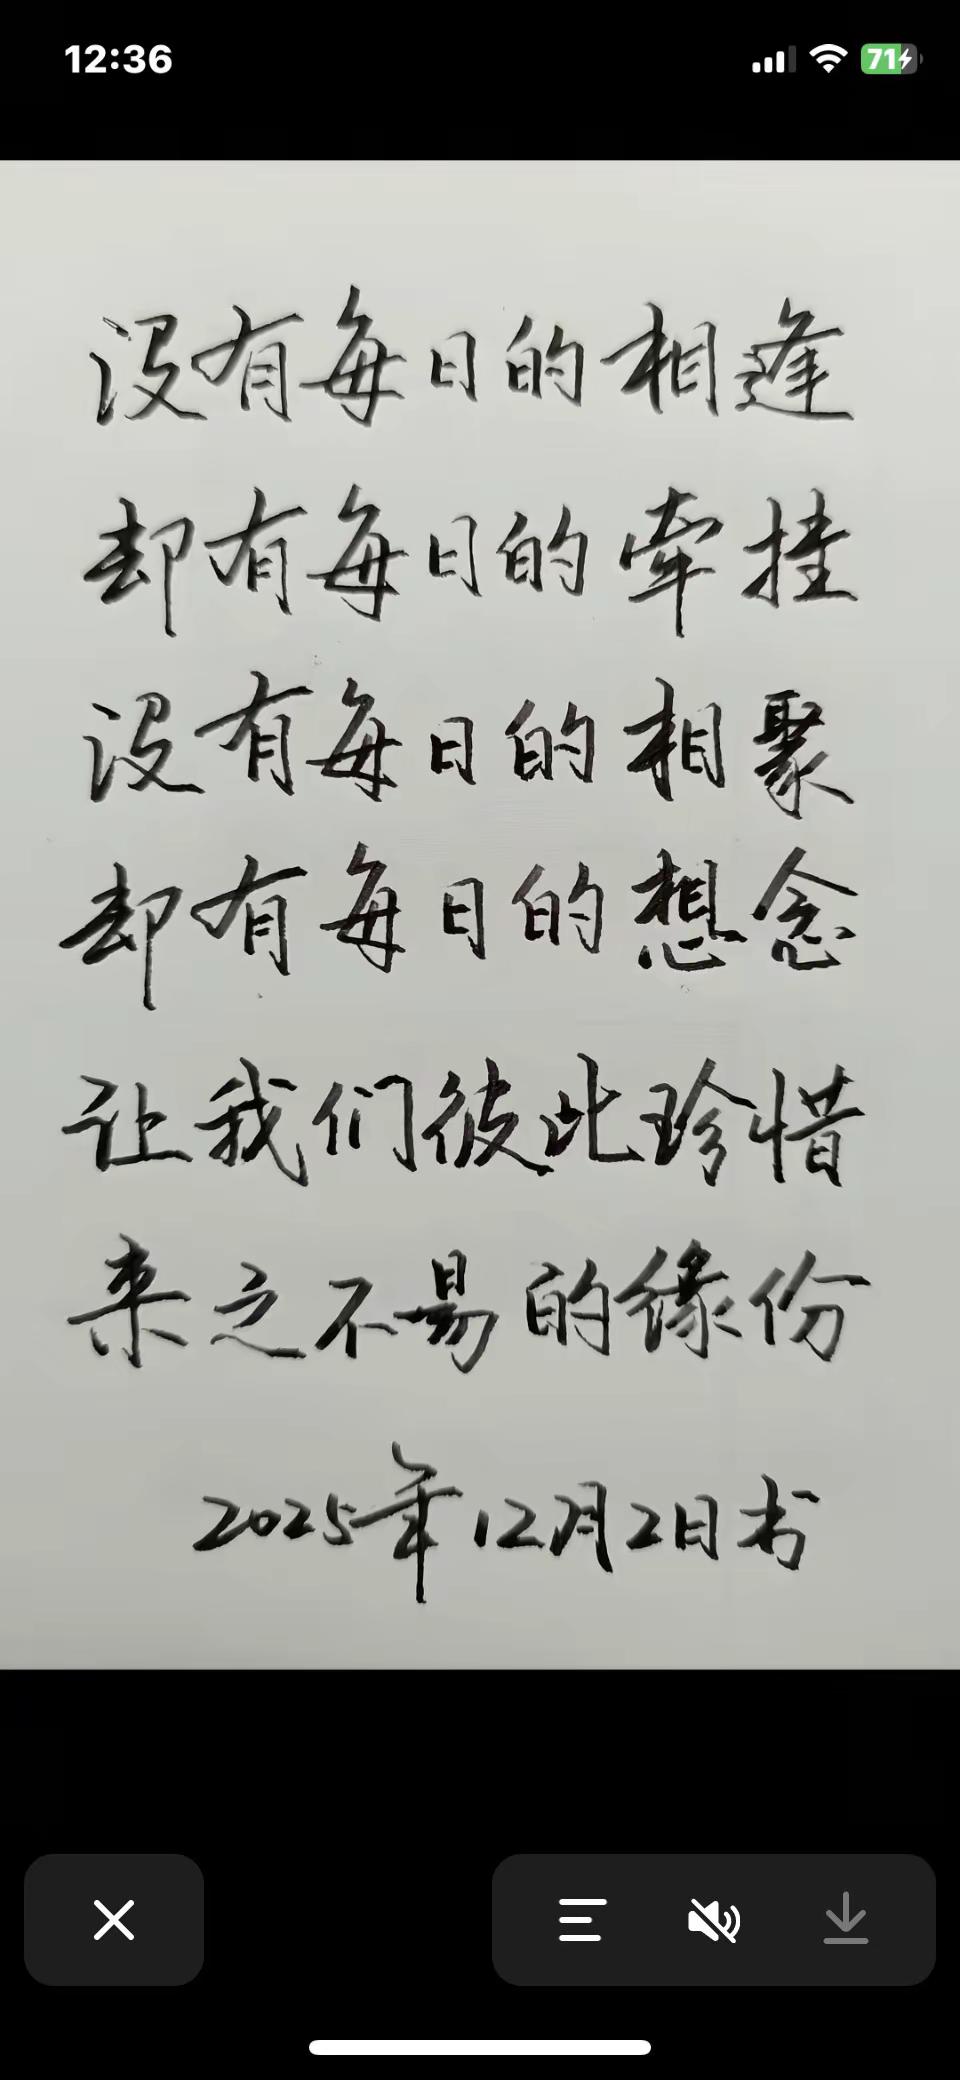 12:36
71
没有每日的相逢
却有每日的牵挂
没有每日的相聚
却有每日的想念
让我们彼此珍惜
来之不易的缘份
2025年12月2日书